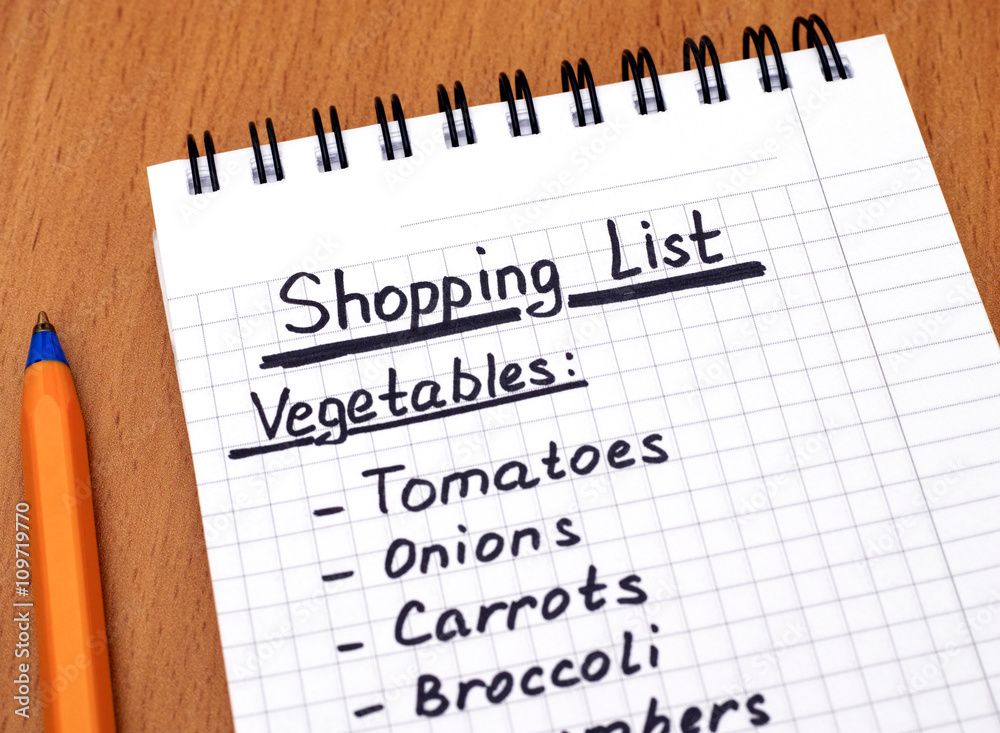 Shopping List
Vegetables:
- Tomatoes
- Onions
- Carrots
- Broccoli
mbers
Adobe Stock | #109719770